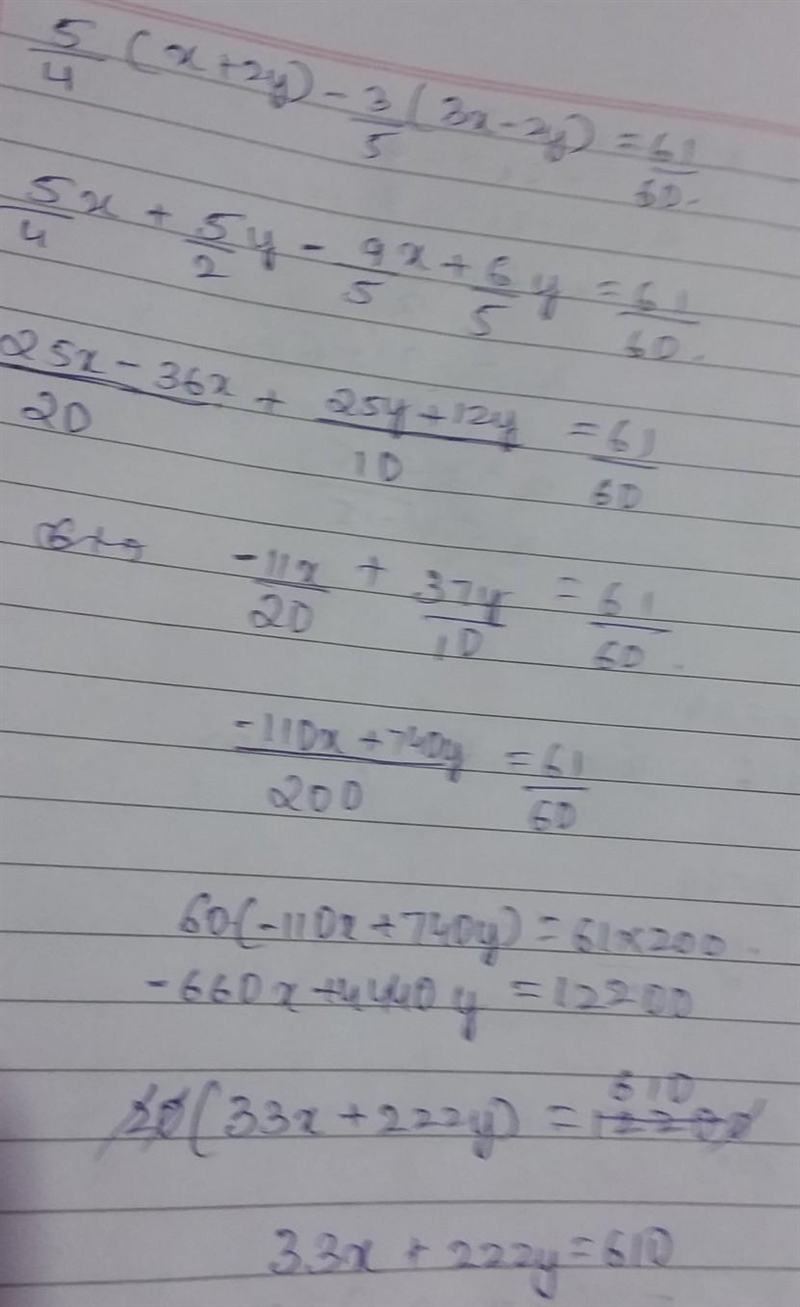 5/4 (x+2y) - 3/5 (3x-2y) = 61/60.
5/4 x + 5/2 y - 9x/5 + 6/5 y = 61/60.
25x - 36x/20 + 25y + 12y/10 = 61/60
-11x/20 + 37y/10 = 61/60.
-110x + 740y/200 = 61/60
60(-110x + 740y) = 61x200.
-660x + 4440y = 12200
20(33x + 222y) = 12200 610
33x + 222y = 610